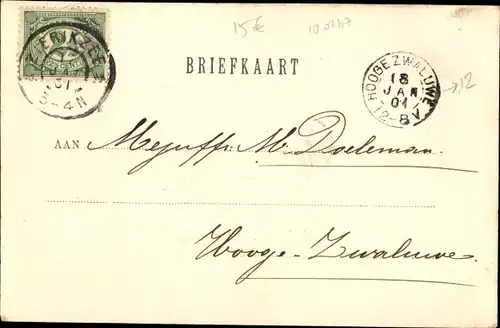 15€
ZIERIKZEE
3-4N
BRIEFKAART
HOOGE ZWALUWE
18
JAN
01
12-8V
→12
AAN Mejuffr. M. Doeleman.
Hooge-Zwaluwe.